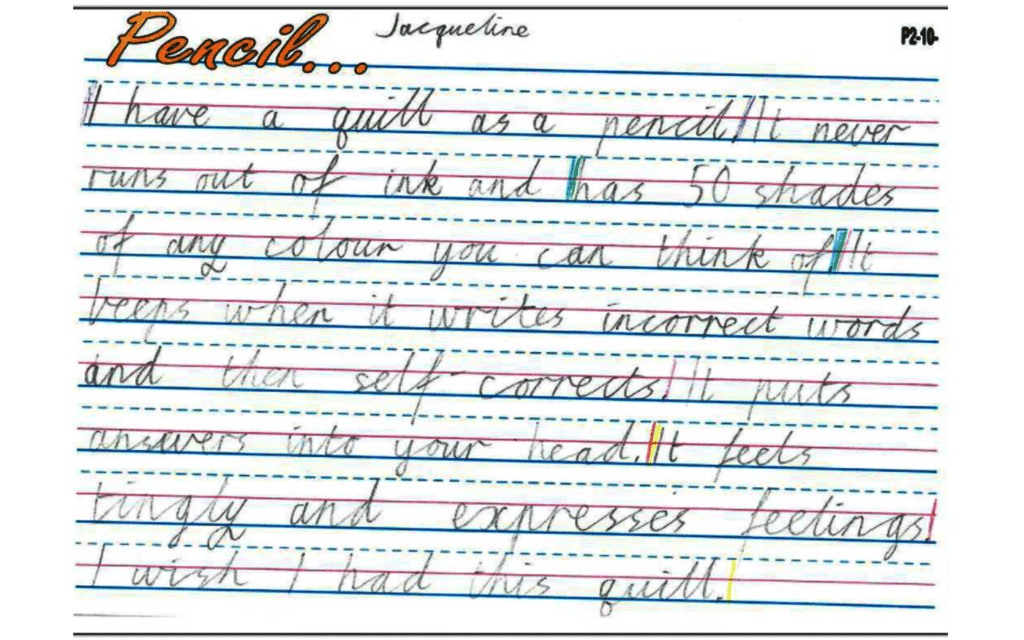 Pencil... Jacqueline P2-10-
I have a quill as a pencil. It never
runs out of ink and has 50 shades
of any colour you can think of. It
beeps when it writes incorrect words
and then self-corrects. It puts
answers into your head. It feels
tingly and expresses feelings.
I wish I had this quill.